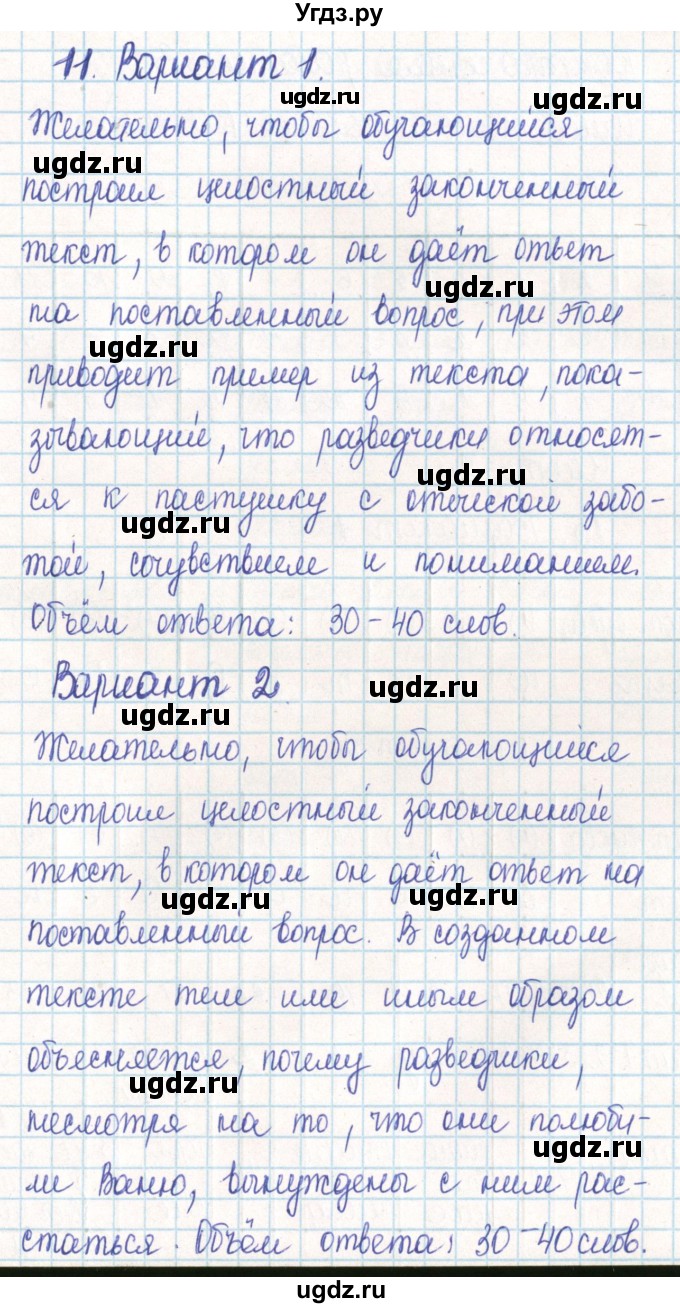 Угдз.ру
11. Вариант 1.
ugdz.ru ugdz.ru
Желательно, чтобы обучающийся
ugdz.ru
построил целостный законченный
текст, в котором он даёт ответ
ugdz.ru
на поставленный вопрос, при этом
ugdz.ru
приводит пример из текста, пока-
зывающий, что разведчики относят-
ugdz.ru
ся к пастушку с отческой забо-
ugdz.ru
той, сочувствием и пониманием.
Объём ответа: 30-40 слов.
Вариант 2.
ugdz.ru
ugdz.ru
Желательно, чтобы обучающийся
построил целостный законченный
текст, в котором он даёт ответ на
ugdz.ru ugdz.ru
поставленный вопрос. В созданном
тексте тем или иным образом
объясняется, почему разведчики,
ugdz.ru
несмотря на то, что они полюби-
ugdz.ru
ли Ваню, вынуждены с ним рас-
статься. Объём ответа: 30-40 слов.
ugdz.ru